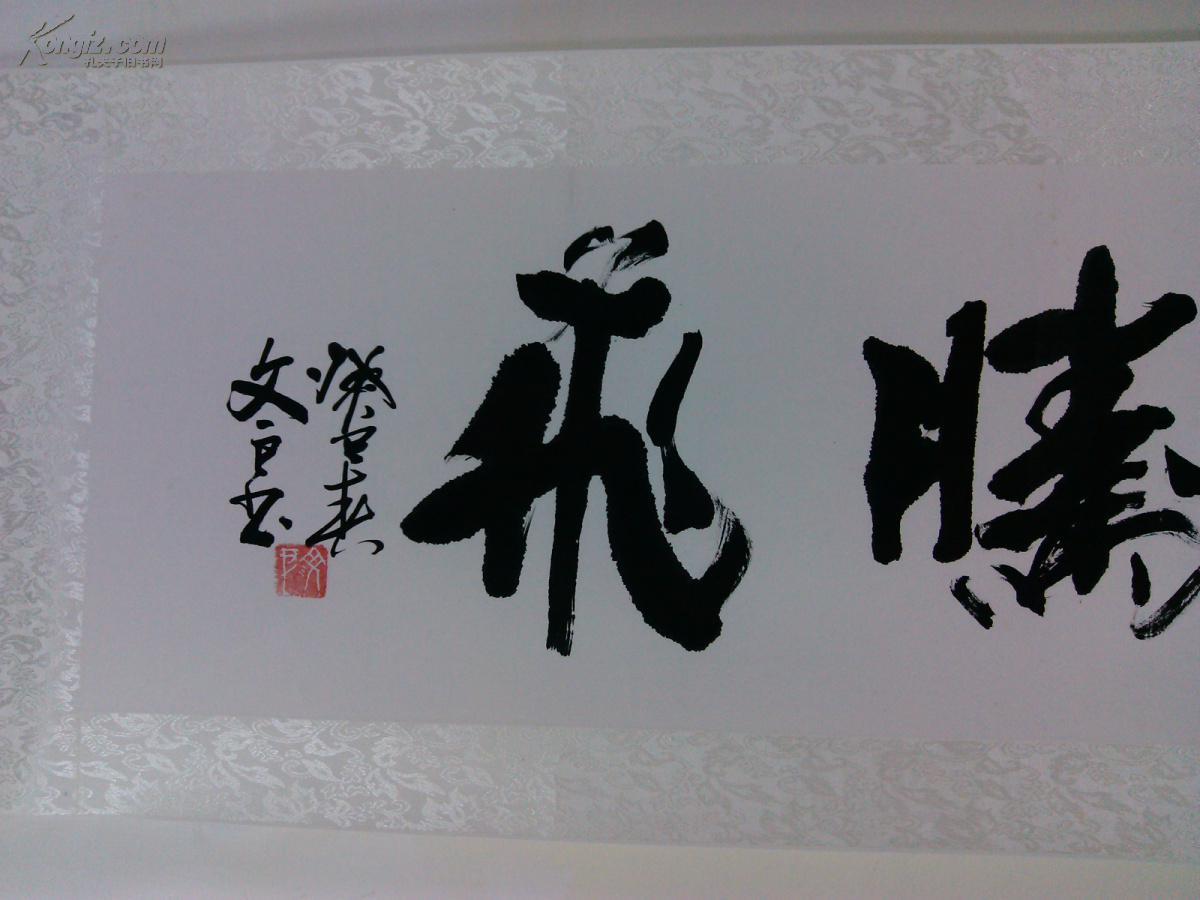 Kongfz.com
孔夫子旧书网
腾飞
癸巳春
文
书